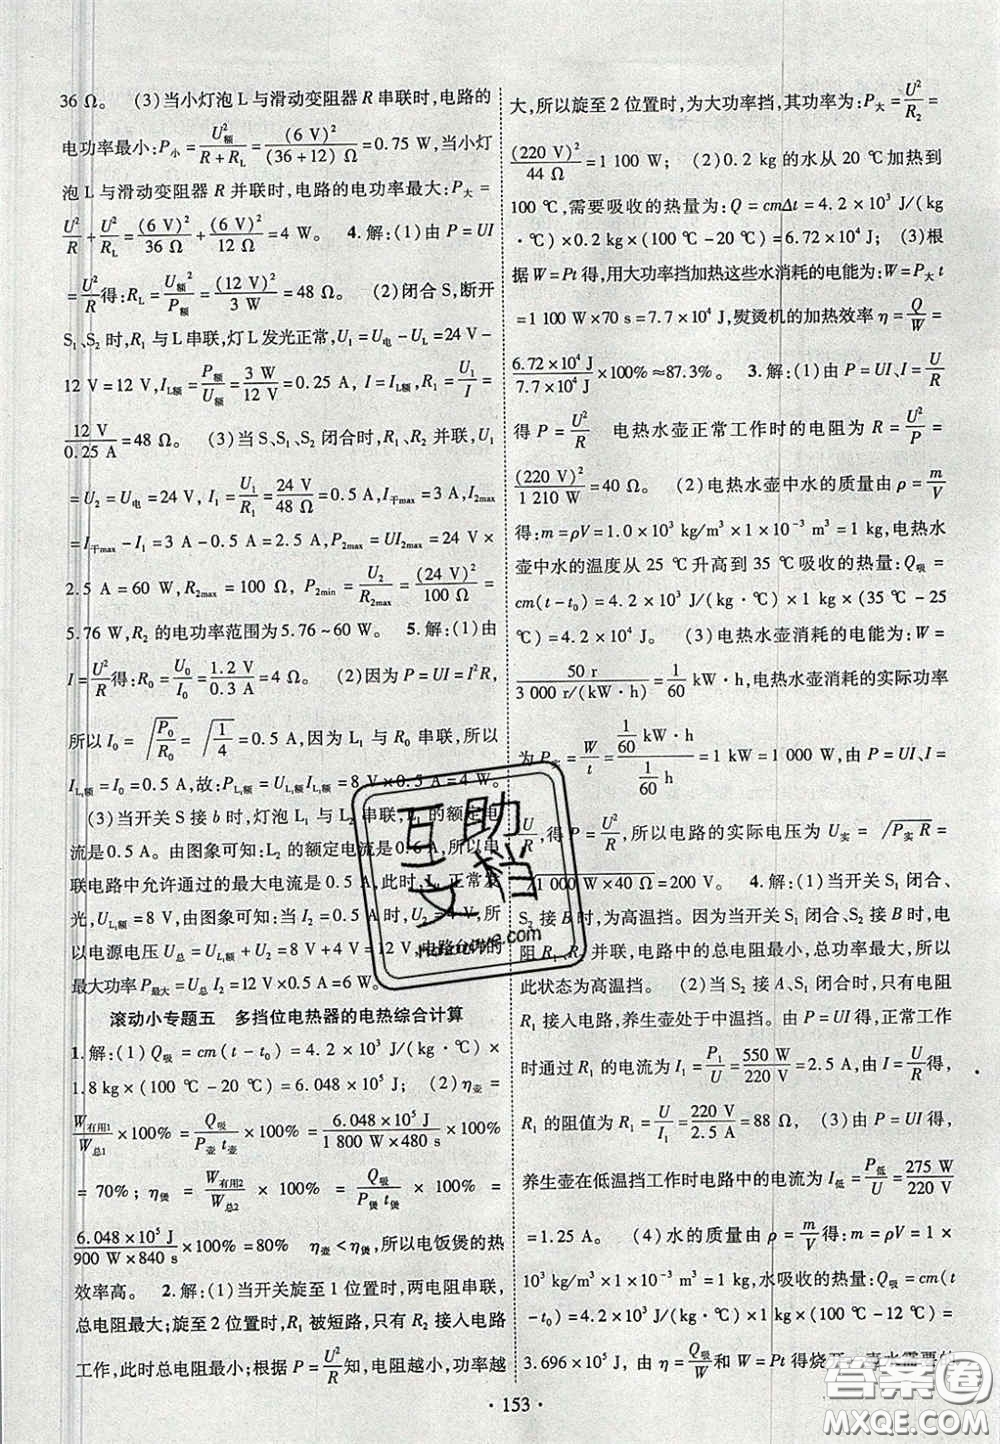 36 Ω。 (3)当小灯泡 L 与滑动变阻器 R 串联时,电路的
电功率最小:P小 = U额²/(R + RL) = (6 V)²/((36+12) Ω) = 0.75 W,当小灯
泡 L 与滑动变阻器 R 并联时,电路的电功率最大:P大 =
U²/R + U²/RL = (6 V)²/36 Ω + (6 V)²/12 Ω = 4 W。 4.解:(1)由 P = UI
= U²/R 得:RL = U额²/P额 = (12 V)²/3 W = 48 Ω。 (2)闭合 S,断开
S1、S2 时,R1 与 L 串联,灯 L 发光正常,U1 = U电 - UL = 24 V -
12 V = 12 V,IL额 = P额/U额 = 3 W/12 V = 0.25 A,I = IL额,R1 = U1/I =
12 V/0.25 A = 48 Ω。 (3)当 S、S1、S2 闭合时,R1、R2 并联,U1
= U2 = U电 = 24 V,I1 = U1/R1 = 24 V/48 Ω = 0.5 A,I干max = 3 A,I2max
= I干max - I1 = 3 A - 0.5 A = 2.5 A,P2max = UI2max = 24 V ×
2.5 A = 60 W,R2max = 100 Ω,P2min = U2/R2max = (24 V)²/100 Ω =
5.76 W,R2 的电功率范围为 5.76~60 W。 5.解:(1)由
I = U²/R 得:R0 = U0/I0 = 1.2 V/0.3 A = 4 Ω。 (2)因为 P = UI = I²R,
所以 I0 = √(P0/R0) = √(1/4) = 0.5 A,因为 L1 与 R0 串联,所以
IL1额 = I0 = 0.5 A,故:PL1额 = UL1额 IL1额 = 8 V×0.5 A = 4 W。
(3)当开关 S 接 b 时,灯泡 L1 与 L2 串联,L1 的额定电
流是 0.5 A。由图象可知:L2 的额定电流是 0.6 A,所以串
联电路中允许通过的最大电流是 0.5 A,此时,L1 正常发
光,UL1额 = 8 V,由图象可知,U2 = 4 V,所
以电源电压 U总 = UL1额 + U2 = 8 V + 4 V = 12 V,电路允许的
最大功率 P最大 = U总 I = 12 V×0.5 A = 6 W。
滚动小专题五 多挡位电热器的电热综合计算
1.解:(1)Q吸 = cm(t - t0) = 4.2×10³ J/(kg·℃)×
1.8 kg×(100 ℃ - 20 ℃) = 6.048×10⁵ J; (2)η壶 =
W有用1/W总1 ×100% = Q吸/(P壶 t壶) ×100% = 6.048×10⁵ J/(1 800 W×480 s) ×100%
= 70%; η煲 = W有用2/W总2 ×100% = Q吸/(P煲 t煲) ×100% =
6.048×10⁵ J/(900 W×840 s) ×100% = 80% η壶 < η煲,所以电饭煲的热
效率高。 2.解:(1)当开关旋至 1 位置时,两电阻串联,
总电阻最大;旋至 2 位置时,R1 被短路,只有 R2 接入电路
工作,此时总电阻最小;根据 P = U²/R 知,电阻越小,功率越
大,所以旋至 2 位置时,为大功率挡,其功率为:P大 = U²/R2 =
(220 V)²/44 Ω = 1 100 W; (2)0.2 kg 的水从 20 ℃加热到
100 ℃,需要吸收的热量为:Q = cmΔt = 4.2×10³ J/(kg
·℃)×0.2 kg×(100 ℃ - 20 ℃) = 6.72×10⁴ J; (3)根
据 W = Pt 得,用大功率挡加热这些水消耗的电能为:W = P大 t
= 1 100 W×70 s = 7.7×10⁴ J,熨烫机的加热效率 η = Q/W =
6.72×10⁴ J/7.7×10⁴ J ×100% ≈ 87.3%。 3.解:(1)由 P = UI、I = U/R
得 P = U²/R 电热水壶正常工作时的电阻为 R = U²/P =
(220 V)²/1 210 W = 40 Ω。 (2)电热水壶中水的质量由 ρ = m/V
得:m = ρV = 1.0×10³ kg/m³×1×10⁻³ m³ = 1 kg,电热水
壶中水的温度从 25 ℃升高到 35 ℃吸收的热量:Q吸 =
cm(t - t0) = 4.2×10³ J/(kg·℃)×1 kg×(35 ℃ - 25
℃) = 4.2×10⁴ J。 (3)电热水壶消耗的电能为:W =
50 r/(3 000 r/(kW·h)) = 1/60 kW·h,电热水壶消耗的实际功率
为 P实 = W/t = (1/60 kW·h)/(1/60 h) = 1 kW = 1 000 W,由 P = UI、I =
U/R,得 P = U²/R,所以电路的实际电压为 U实 = √(P实 R) =
√(1 000 W×40 Ω) = 200 V。 4.解:(1)当开关 S1 闭合、
S2 接 B 时,为高温挡。因为当开关 S1 闭合、S2 接 B 时,电
阻 R1、R2 并联,电路中的总电阻最小,总功率最大,所以
此状态为高温挡。 (2)当 S2 接 A、S1 闭合时,只有电阻
R1 接入电路,养生壶处于中温挡。由 P = UI 得,正常工作
时通过 R1 的电流为 I1 = P1/U = 550 W/220 V = 2.5 A,由 I = U/R 得,
R1 的阻值为 R1 = U/I1 = 220 V/2.5 A = 88 Ω; (3)由 P = UI 得,
养生壶在低温挡工作时电路中的电流为 I低 = P低/U = 275 W/220 V
= 1.25 A。 (4)水的质量由 ρ = m/V 得:m = ρV = 1×
10³ kg/m³×1×10⁻³ m³ = 1 kg,水吸收的热量:Q吸 = cm(t
- t0) = 4.2×10³ J/(kg·℃)×1 kg×(100 ℃ - 12 ℃) =
3.696×10⁵ J,由 η = Q吸/W 和 W = Pt 得烧开
· 153 ·
互助
文档
答案圈
MXQE.COM